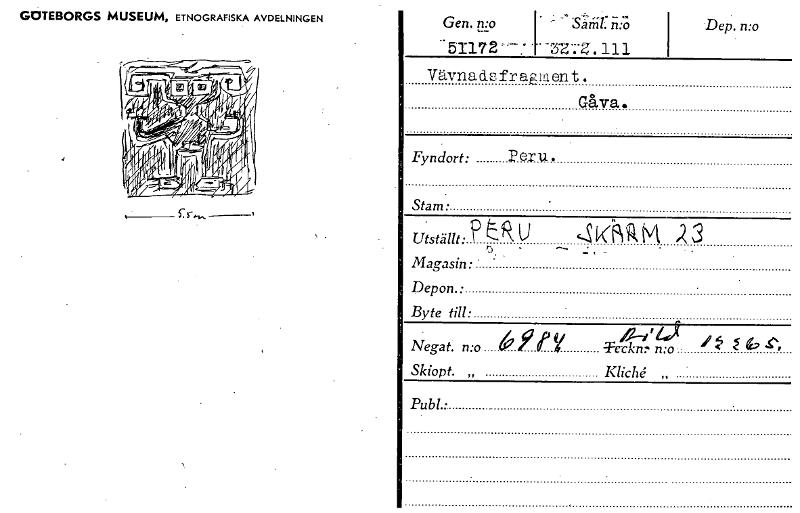 GÖTEBORGS MUSEUM, ETNOGRAFISKA AVDELNINGEN
5.5 cm
Gen. n:o Saml. n:o Dep. n:o
51172 32.2.111
Vävnadsfragment.
Gåva.
Fyndort: Peru.
Stam:
Utställt: PERU SKÄRM 23
Magasin:
Depon.:
Byte till:
Negat. n:o 6984 Bild Teckn. n:o
Skiopt. „ Kliché „
Publ.: